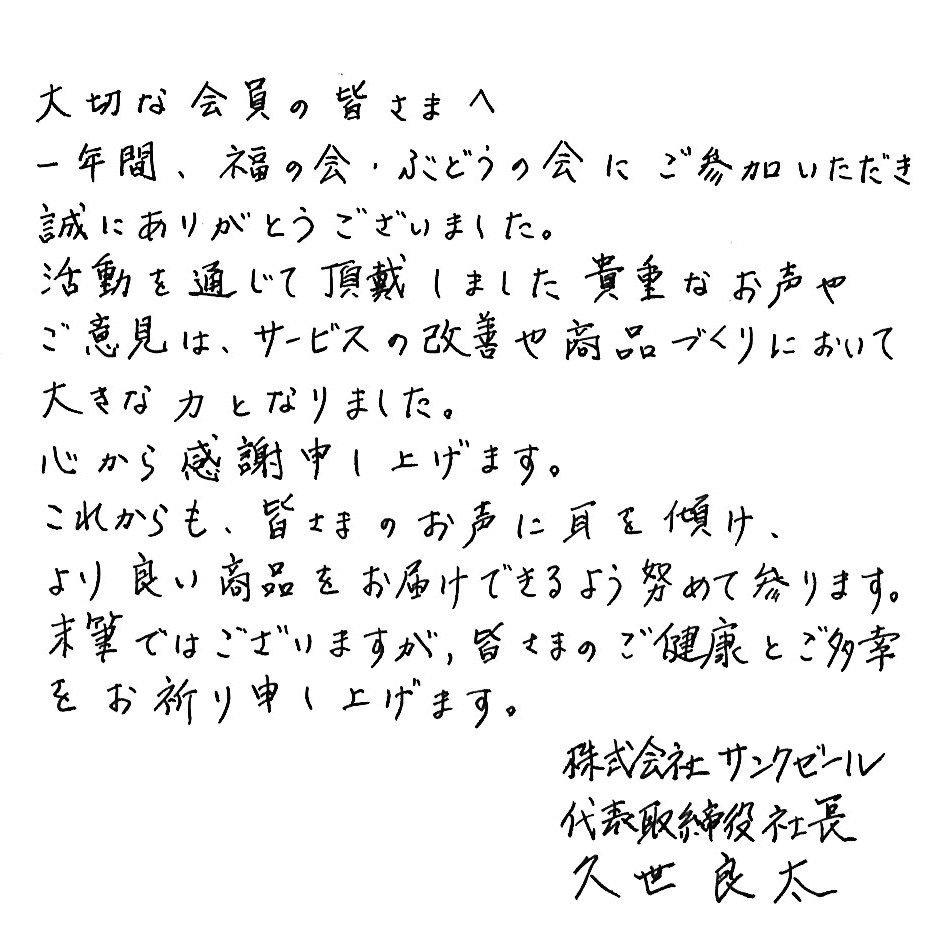 大切な会員の皆さまへ
一年間、福の会・ぶどうの会にご参加いただき
誠にありがとうございました。
活動を通じて頂戴しました貴重なお声や
ご意見は、サービスの改善や商品づくりにおいて
大きな力となりました。
心から感謝申し上げます。
これからも、皆さまのお声に耳を傾け、
より良い商品をお届けできるよう努めて参ります。
末筆ではございますが、皆さまのご健康とご多幸
をお祈り申し上げます。
株式会社サンクゼール
代表取締役社長
久世良太